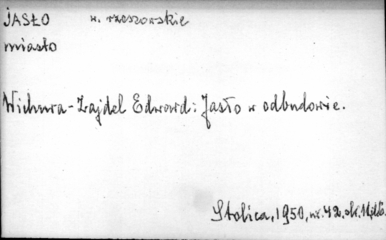 JASŁO w. rzeszowskie
miasto
Wichura-Zajdel Edward: Jasło w odbudowie.
Stolica, 1950, nr. 42. str.